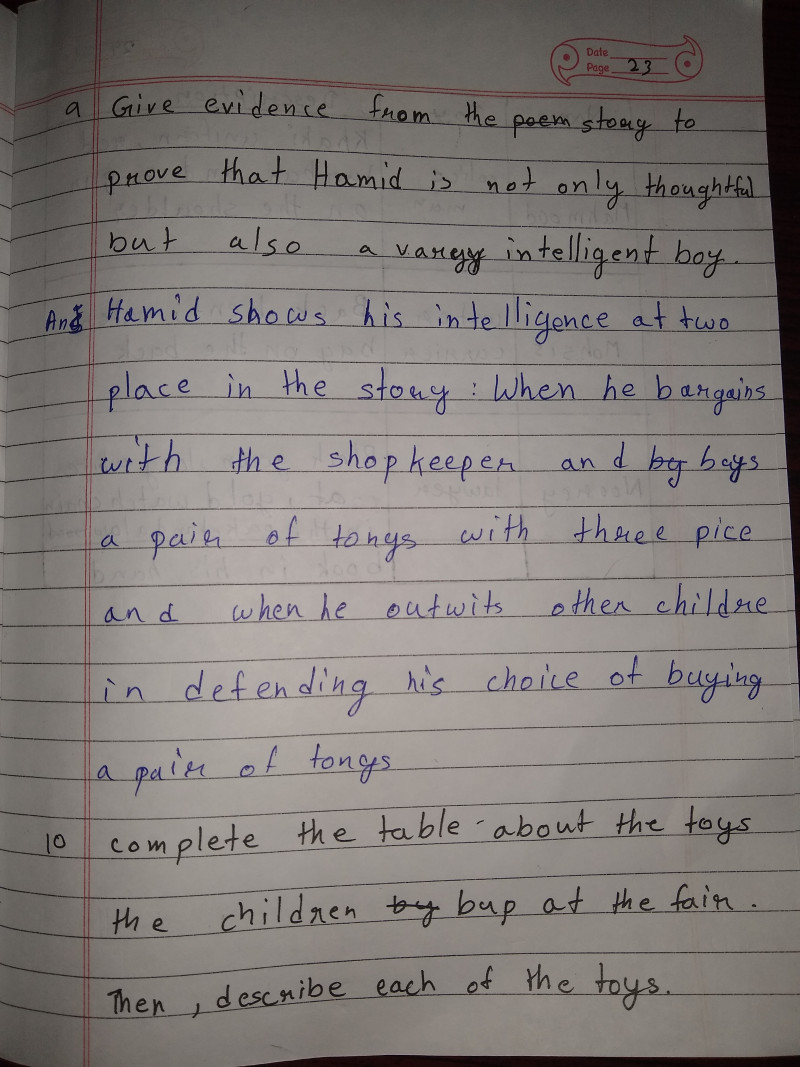 Date
Page 23
a Give evidence from the poem stony to
prove that Hamid is not only thoughtful
but also a vargy intelligent boy.
Ans Hamid shows his intelligence at two
place in the stony : When he bargains
with the shopkeeper and by bays
a pair of tongs with three pice
and when he outwits other childre
in defending his choice of buying
a pair of tongs
10 complete the table about the toys
the children by bup at the fair.
Then, describe each of the toys.